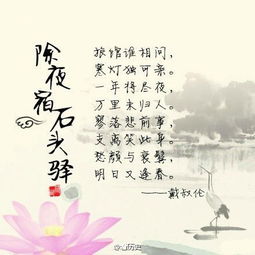 除夜宿石头驿
旅馆谁相问,
寒灯独可亲。
一年将尽夜,
万里未归人。
寥落悲前事,
支离笑此身。
愁颜与衰鬓,
明日又逢春。
——戴叔伦